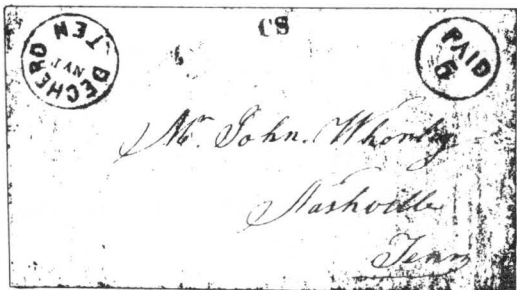 CS
DECHERD TEN
JAN
PAID
5
Mr. John. Whorley
Nashville
Tenn